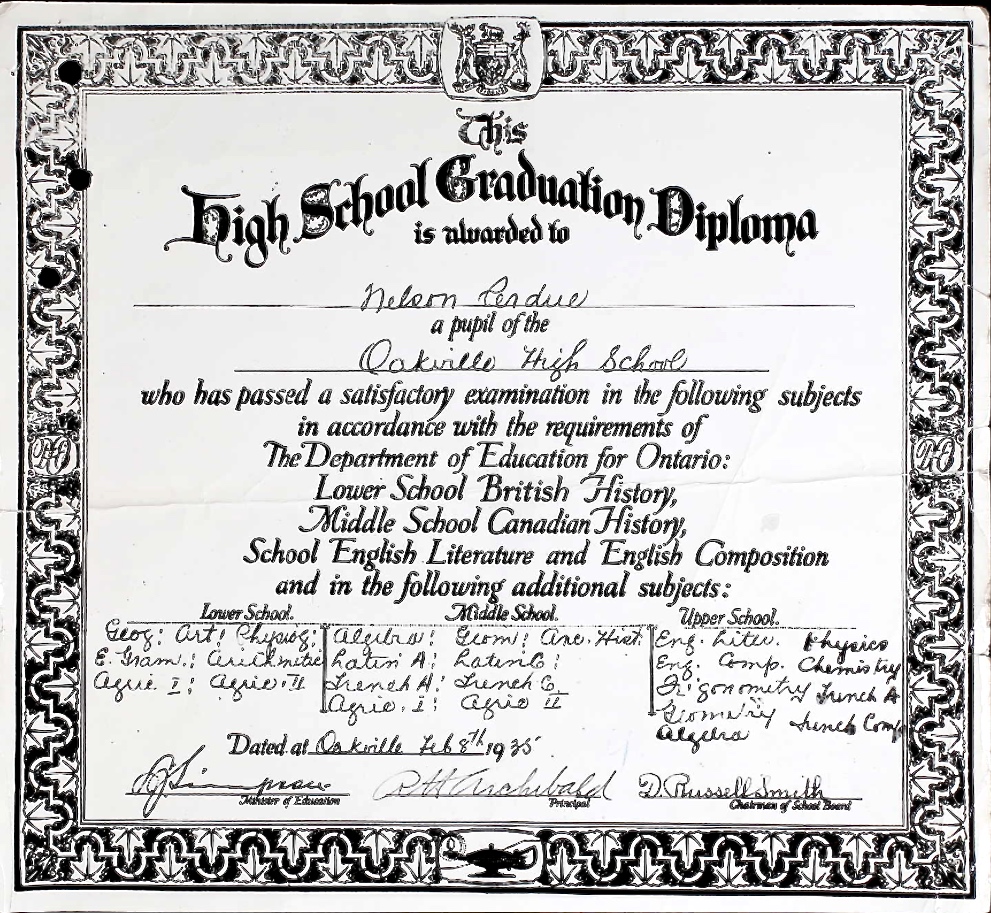 This
High School Graduation Diploma
is awarded to
Nelson Perdue
a pupil of the
Oakville High School
who has passed a satisfactory examination in the following subjects
in accordance with the requirements of
The Department of Education for Ontario:
Lower School British History,
Middle School Canadian History,
School English Literature and English Composition
and in the following additional subjects:
Lower School. Middle School. Upper School.
Geog: Art: Physiog: Algebra: Geom: Anc. Hist. Eng. Liter. Physics
E. Gram.: Arithmetic Latin A: Latin C: Eng. Comp. Chemistry
Agric I: Agric II French A: French C Trigonometry French A
Agric. I: Agric II Geometry French Comp
Algebra
Dated at Oakville Feb 8th 1935
L J Simpson R H Archibald D. Russell Smith
Minister of Education Principal Chairman of School Board